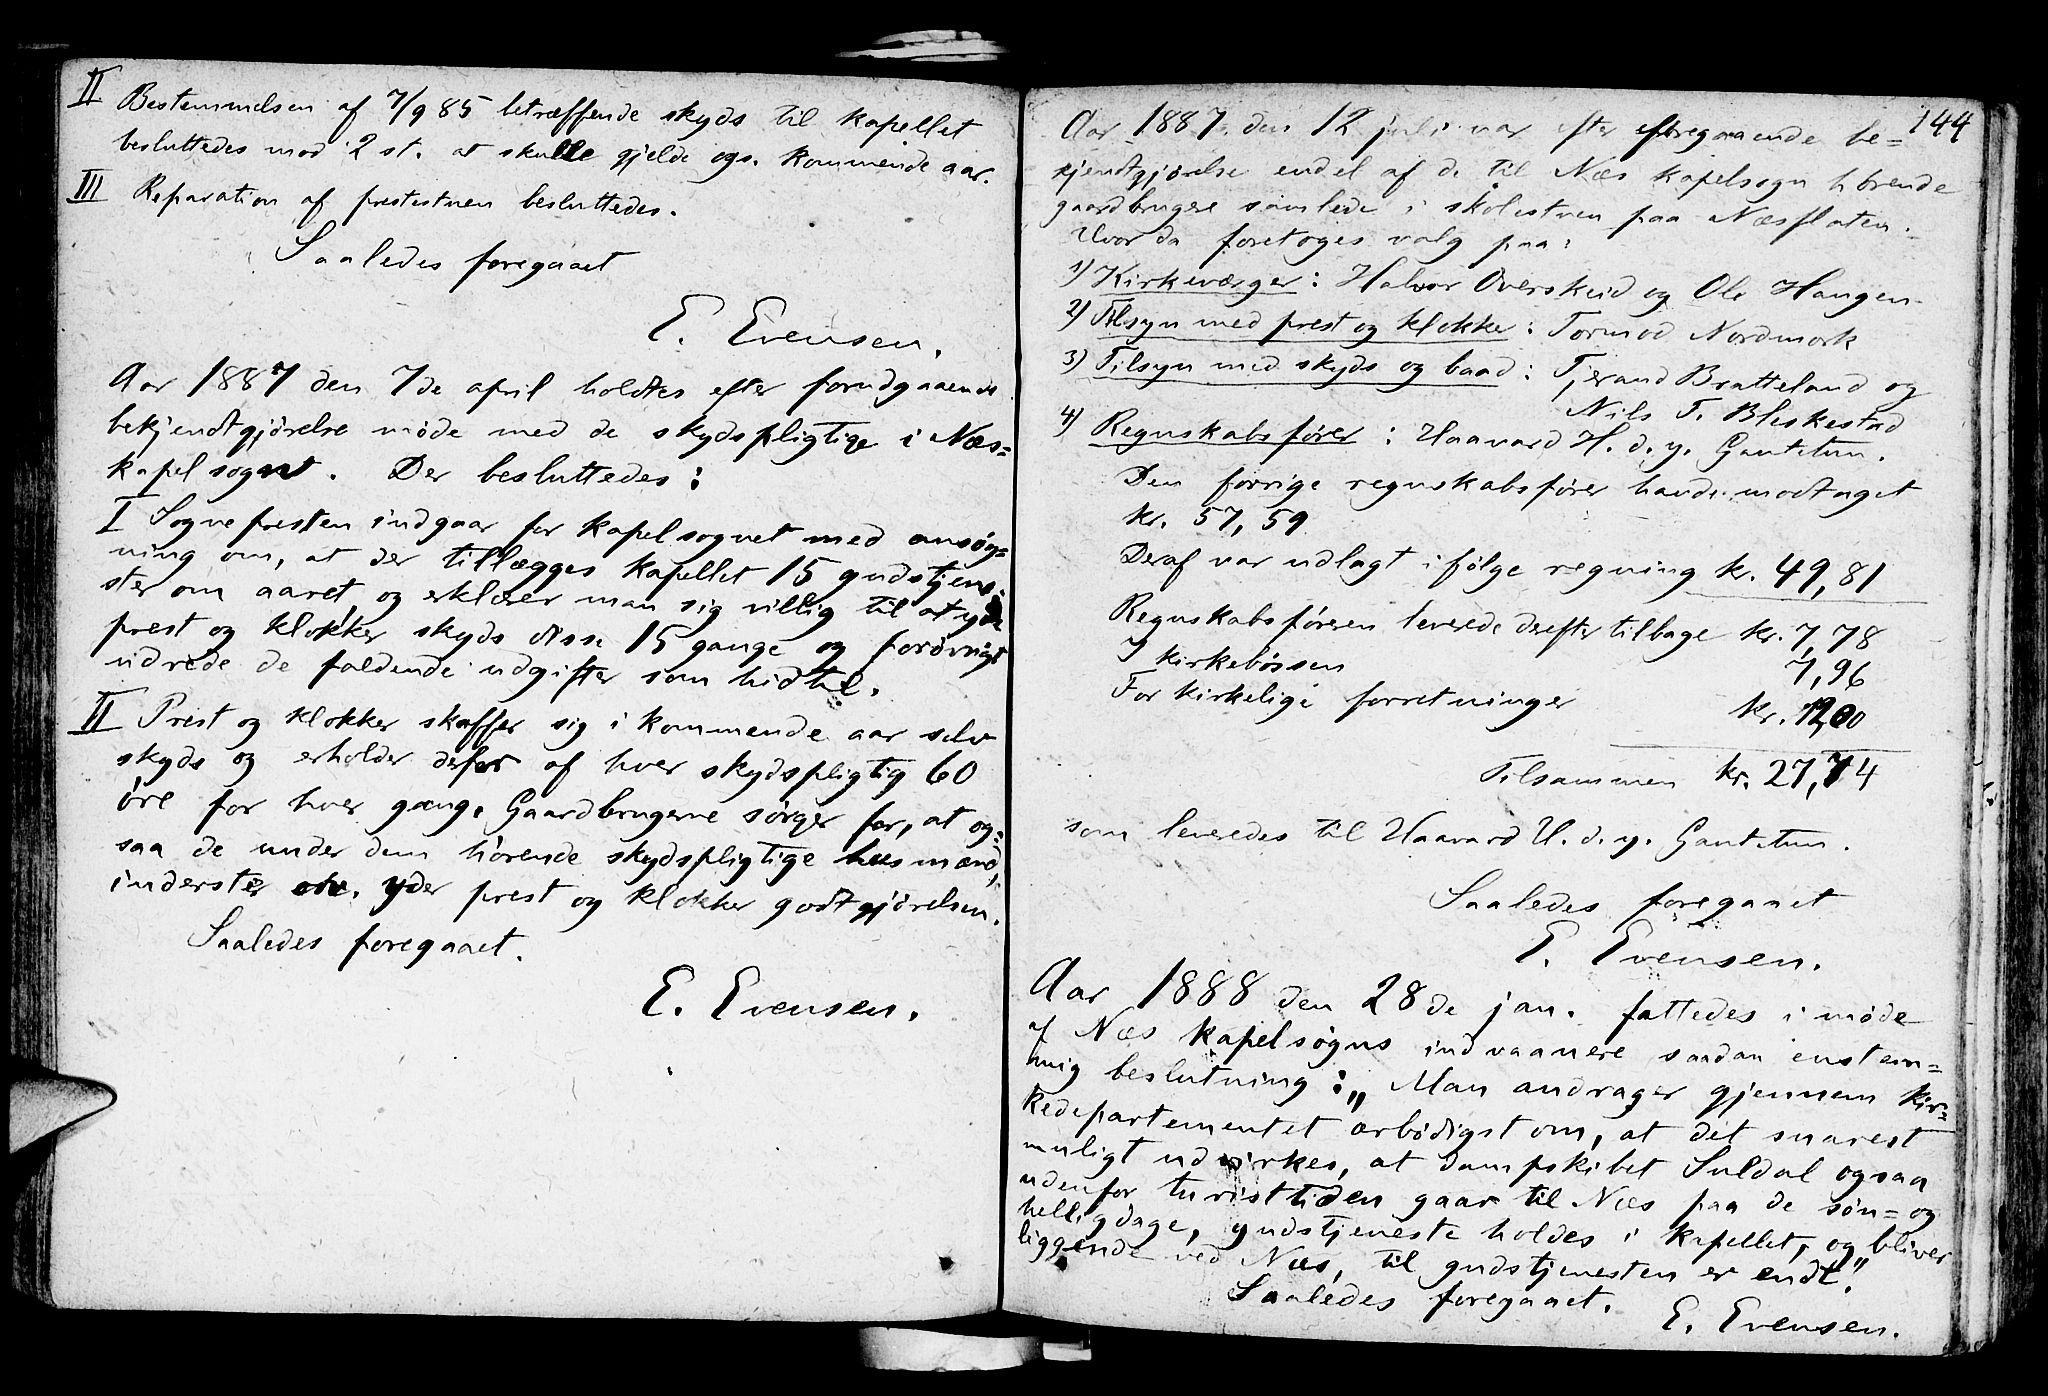 II Bestemmelsen af 7/9 85 betræffende skyds til kapellet
besluttedes mod 2 st. at skulle gjelde ogs. kommende aar.
III Reparation af prestestuen besluttedes.
Saaledes foregaaet
E. Evensen.
Aar 1887 den 7de april holdtes efter forudgaaende
bekjendtgjørelse møde med de skydspligtige i Næs=
kapelsogn. Der besluttedes:
I Sognepresten indgaar for kapelsognet med ansøg=
ning om, at der tillægges kapellet 15 gudstjene=
ster om aaret, og erklærer man sig villig til at yde
prest og klokker skyds disse 15 gange og forøvrigt
udrede de faldende udgifter som hidtil.
II Prest og klokker skaffer sig i kommende aar selv
skyds og erholder derfor af hver skydspligtig 60
øre for hver gang. Gaardbrugerne sørger for, at og=
saa de under dem hørende skydspligtige husmænd,
inderster otv. yder prest og klokker godtgjørelsen.
Saaledes foregaaet.
E. Evensen.
144
Aar 1887 den 12 juli var efter foregaaende be=
kjendtgjørelse endel af de til Næs kapelsogn hørende
gaardbrugere samlede i skolestuen paa Næsflaten.
Hvor da foretoges valg paa:
1) Kirkeværger: Halvor Overskeid og Ole Haugen
2) Tilsyn med prest og klokker: Tormod Nordmork
3) Tilsyn med skyds og baad: Tjerand Bratteland og
Nils T. Bleskestad
4) Regnskabsfører: Haavard H. d. y. Gautetun.
Den forrige regnskabsfører havde modtaget
kr. 57,59
Deraf var udlagt ifølge regning kr. 49,81
Regnskabsføreren leverede derefter tilbage kr. 7,78
I kirkebøssen 7,96
For kirkelige forretninger kr. 12,00
Tilsammen kr. 27,74
som leveredes til Haavard H. d. y. Gautetun.
Saaledes foregaaet
E. Evensen.
Aar 1888 den 28de jan. fattedes i møde
af Næs kapelsogns indvaanere saadan enstem=
mig beslutning: „Man andrager gjennem Kir=
kedepartementet ærbødigst om, at det snarest
muligt udvirkes, at dampskibet Suldal ogsaa
udenfor turisttiden gaar til Næs paa de søn= og
helligdage, gudstjeneste holdes i kapellet, og bliver
liggende ved Næs, til gudstjenesten er endt."
Saaledes foregaaet.
E. Evensen.